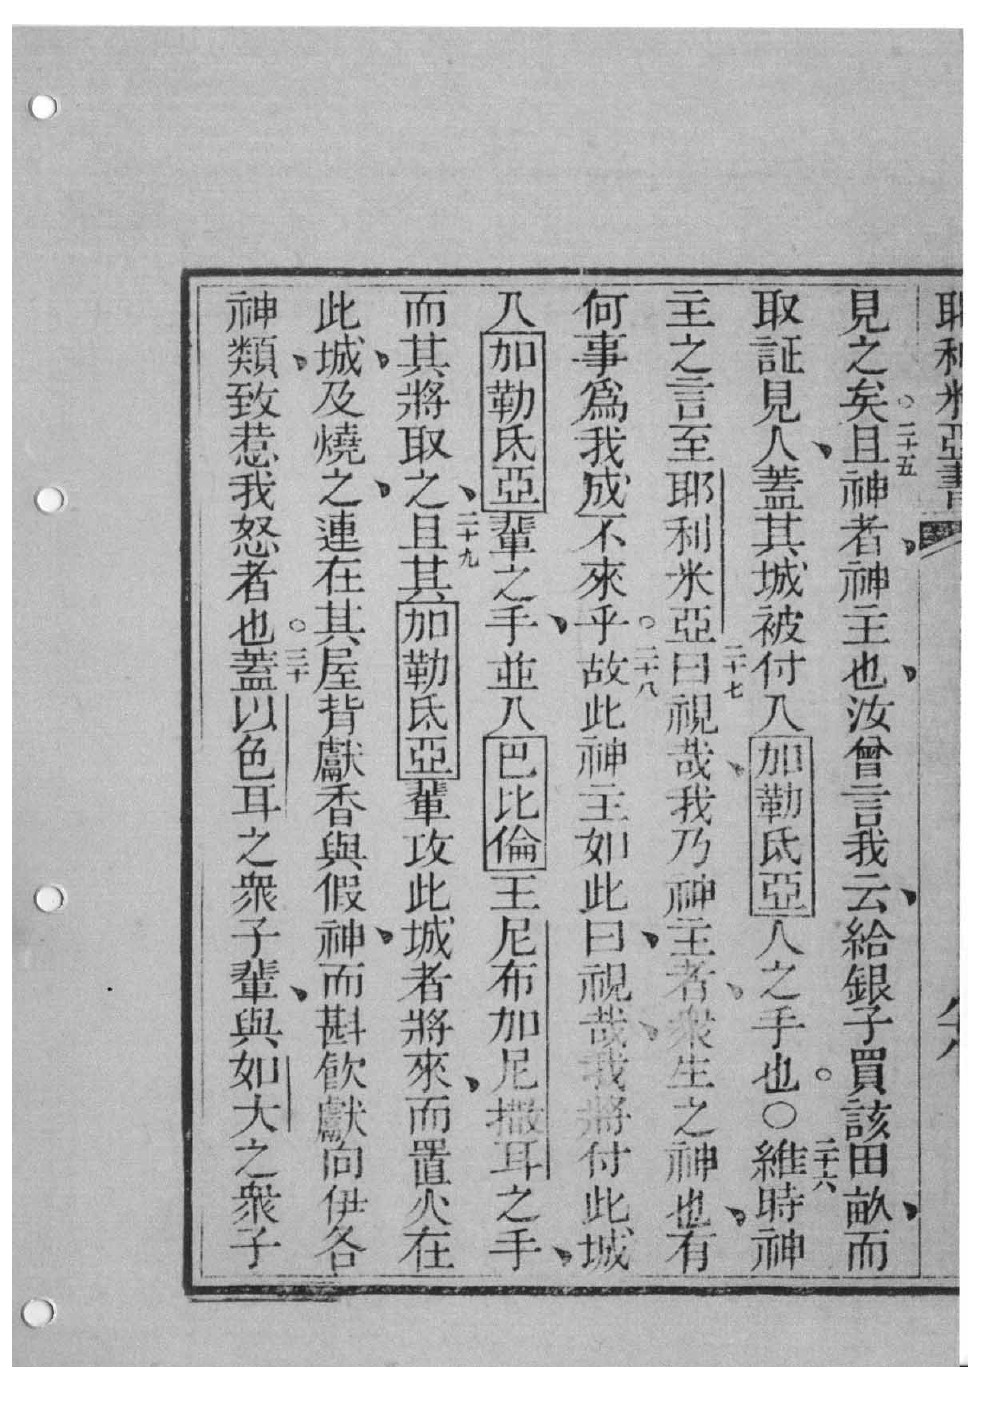 耶利米亞書
見之矣。二十五且神者、神主也、汝曾言我云、給銀子買該田畝、而
取証見人、蓋其城被付入加勒氐亞人之手也。〇二十六維時神
主之言至耶利米亞二十七曰視哉、我乃神主者、衆生之神也、有
何事爲我成不來乎。二十八故此神主如此曰、視哉、我將付此城
入加勒氐亞輩之手、並入巴比倫王尼布加尼撒耳之手、
而其將取之、二十九且其加勒氐亞輩攻此城者將來、而置火在
此城、及燒之、連在其屋背獻香與假神、而斟飮獻向伊各
神類、致惹我怒者也。三十蓋以色耳之衆子輩、與如大之衆子